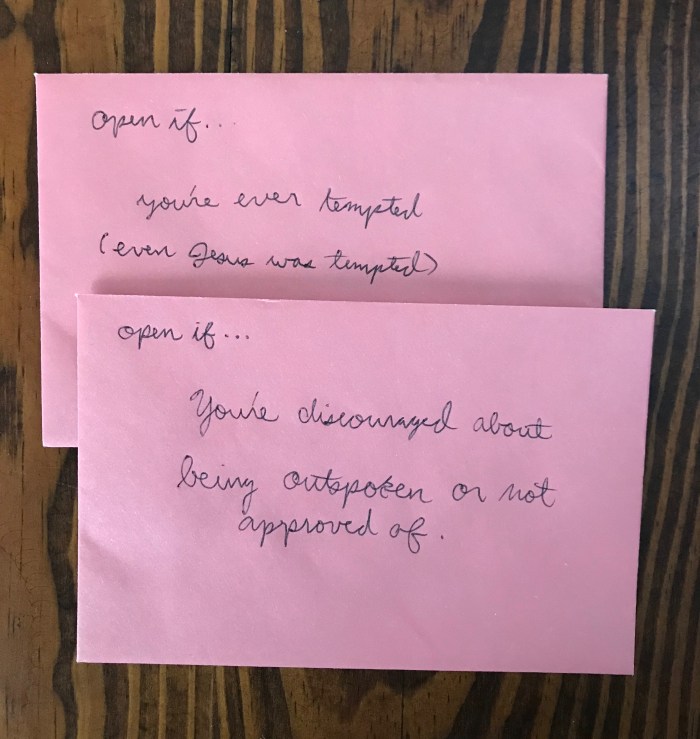 open if...
you're ever tempted
(even Jesus was tempted)
open if...
You're discouraged about
being outspoken or not
approved of.